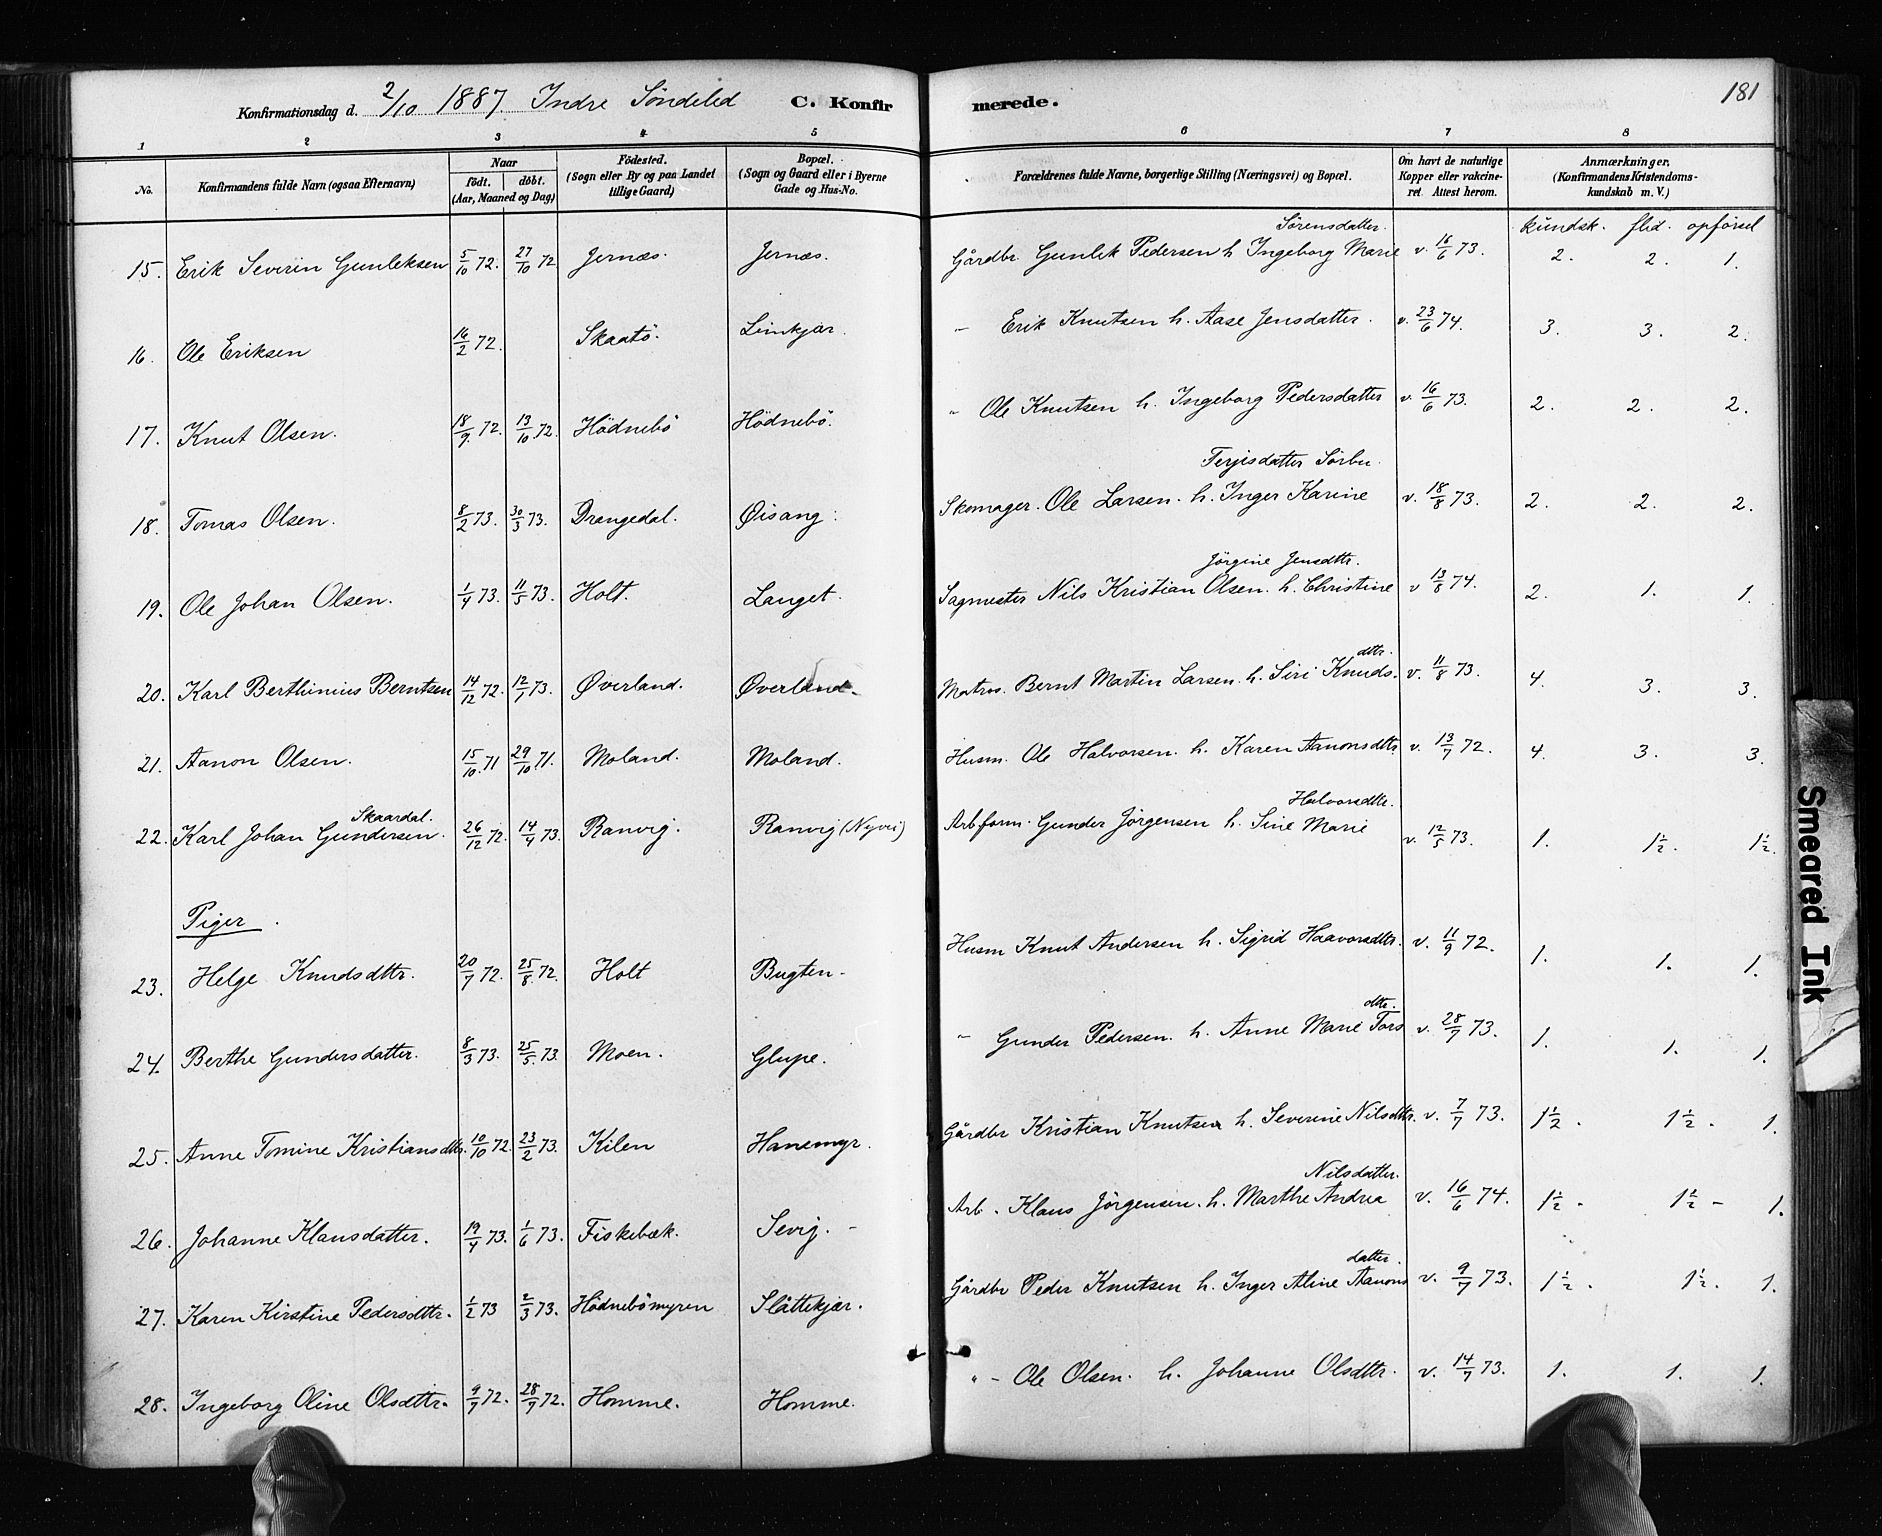 Konfirmationsdag d. 2/10 1887. Indre Söndeled C. Konfirmerede. 181
1 2 3 4 5 6 7 8
No. Konfirmandens fulde Navn (ogsaa Efternavn) Naar födt. döbt. (Aar, Maaned og Dag) Födested. (Sogn eller By og paa Landet tillige Gaard) Bopæl. (Sogn og Gaard eller i Byerne Gade og Hus-No. Forældrenes fulde Navne, borgerlige Stilling (Næringsvei) og Bopæl. Om havt de naturlige Kopper eller vakcineret. Attest herom. Anmærkninger. (Konfirmandens Kristendomskundskab m. V.)
kundsk. flid. opførsel
15. Erik Severin Gunleksen 5/10 72. 27/10 72 Jernæs. Jernæs. Gårdbr. Gunlek Pedersen h. Ingeborg Marie Sørensdatter. v. 16/6 73. 2. 2. 1.
16. Ole Eriksen 16/2 72. Skaatö. Linkjær. " Erik Knutsen h. Aase Jensdatter. v. 23/6 74. 3. 3. 2.
17. Knut Olsen. 18/9 72. 13/10 72. Hödnebö Hödnebö. " Ole Knutsen h. Ingeborg Pedersdatter v. 16/6 73. 2. 2. 2.
18. Tomas Olsen. 8/2 73. 30/3 73. Drangedal. Øisang. Skomager. Ole Larsen. h. Inger Karine Terjisdatter Sørbø. v. 18/8 73. 2. 2. 2.
19. Ole Johan Olsen. 1/4 73. 11/5 73. Holt. Langet. Sagmester Nils Kristian Olsen. h. Christine Jörgine Jensdttr. v 13/8 74. 2. 1. 1.
20. Karl Berthinius Berntsen 14/12 72. 12/7 73. Øverland. Øverland. Matros. Bernt Martin Larsen. h. Siri Knudsdttr. v. 11/8 73. 4. 3. 3.
21. Aanon Olsen. 15/10 71 29/10 71. Moland. Moland. Husm. Ole Halvorsen. h. Karen Aanonsdttr v. 13/7 72. 4. 3. 3.
22. Karl Johan Gundersen Skaardal. 26/12 72. 14/4 73. Ranvig. Ranvig (Nyvei) Arbform. Gunder Jörgensen h. Sine Marie Halvorsdttr. v. 12/5 73. 1. 1½. 1½.
Piger
23. Helge Knudsdttr. 20/7 72. 25/8 72. Holt Bugten. Husm Knut Andersen h. Sigrid Haavorsdttr. v. 11/9 72. 1. 1. 1.
24. Berthe Gundersdatter. 8/3 73. 25/5 73. Moen. Glupe. " Gunder Pedersen. h. Anne Marie Torsdttr. v. 28/7 73. 1. 1. 1.
25. Anne Tomine Kristiansdttr. 10/10 72. 23/2 73. Kilen Hanemyr. Gårdbr Kristian Knutsen h. Severine Nilsdttr. v. 7/7 73. 1½. 1½. 1.
26. Johanne Klausdatter. 19/4 73. 1/6 73. Fiskebæk. Sevig. Arb. Klaus Jörgensen. h. Marthe Andrea Nilsdatter. v. 16/6 74. 1½. 1½ 1.
27. Karen Kirstine Pedersdttr. 1/2 73 2/3 73. Hödnebömyren Slåttekjær. Gårdbr Peder Knutsen h. Inger Aline Aanonsdatter. v. 9/7 73. 1½. 1½. 1.
28. Ingeborg Oline Olsdttr. 9/7 72. 28/7 72. Homme. Homme. " Ole Olsen. h. Johanne Olsdttr. v. 14/7 73. 1. 1. 1.
Smeared Ink